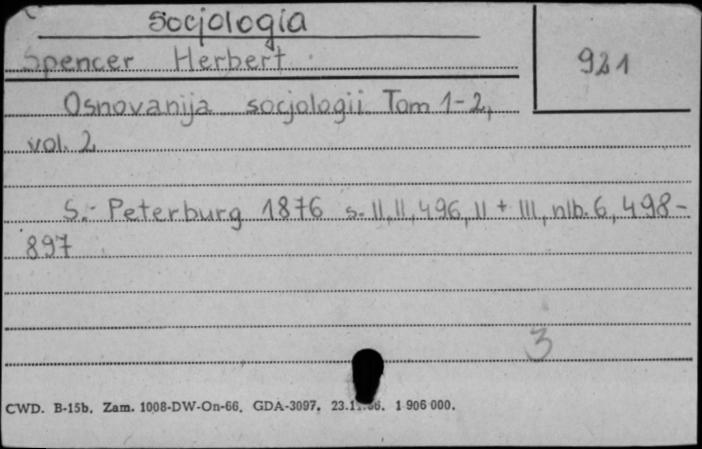 Socjologia
Spencer Herbert
921
Osnovanija socjologii Tom 1-2,
vol. 2
S.- Peterburg 1876 s. II, II, 496, II + III, nlb. 6, 498-
897
3
CWD. B-15b. Zam. 1008-DW-On-66. GDA-3097. 1 906 000.